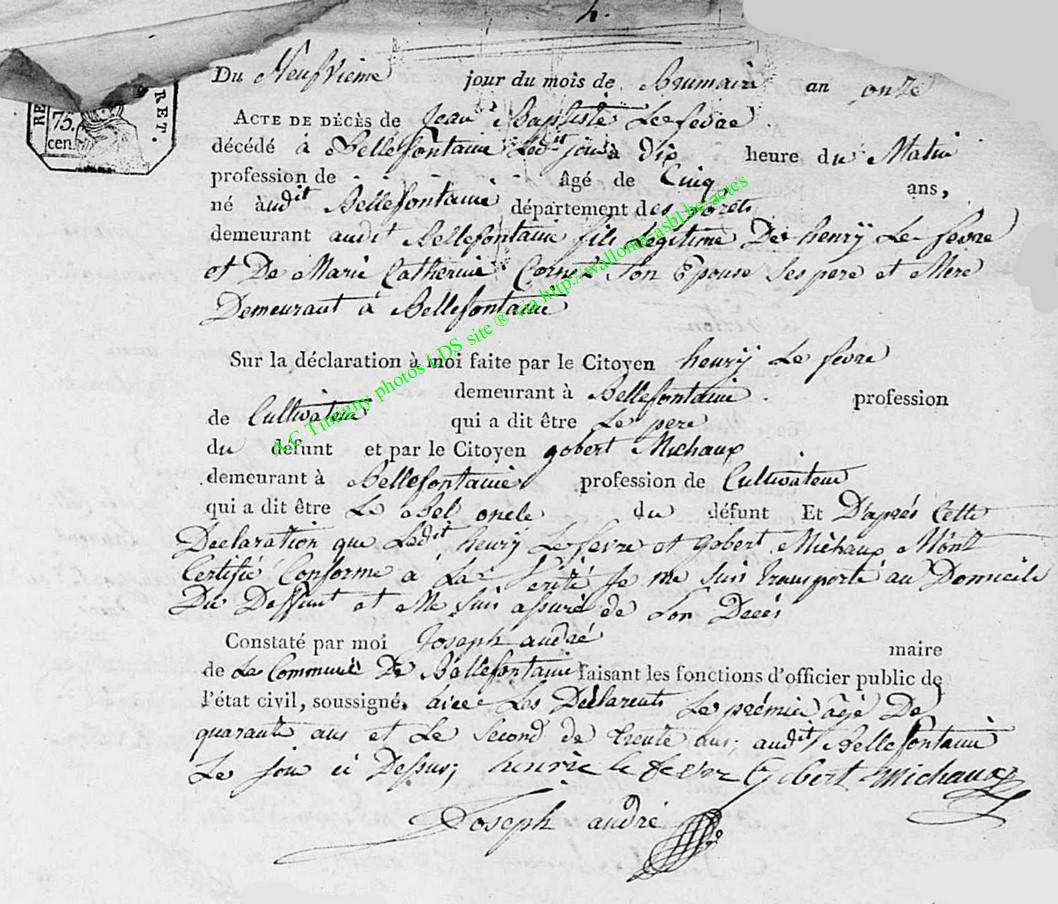 h.
Du Neufvieme jour du mois de Brumaire an onze
RE
RET.
75.
cen.
ACTE DE DÉCÈS de Jean Baptiste Lefevre
décédé à Bellefontaine Ledit jour à Dix heure du Matin
profession de âgé de Cinq ans,
né audit Bellefontaine département des forêts
demeurant audit Bellefontaine fils Légitime De henry Le fevre
et De Marie Catherine Cornet Son Epouse Ses pere et Mere
Demeurant à Bellefontaine
Sur la déclaration à moi faite par le Citoyen henry Le fevre
demeurant à Bellefontaine profession
de Cultivateur qui a dit être Le pere
du défunt et par le Citoyen gobert Michaux
demeurant à Bellefontaine profession de Cultivateur
qui a dit être Le Bel oncle du défunt Et D'après Cette
Déclaration que Ledit henry Le fevre et gobert Michaux M'ont
Certifié Conforme à La Vérité Je me Suis transporté au Domicile
Du Deffunt et Me Suis assuré de Son Décés
Constaté par moi Joseph andré maire
de La Commune De Bellefontaine faisant les fonctions d'officier public de
l'état civil, soussigné, avec Les Déclarents Le prémier âgé De
quarante ans et Le Second de trente ans, audit Bellefontaine
Le Jour ci Dessus, Gobert Michaux
Joseph andré
A.C Timigny photos LDS site ® via http://wallonica.asbl.be/actes